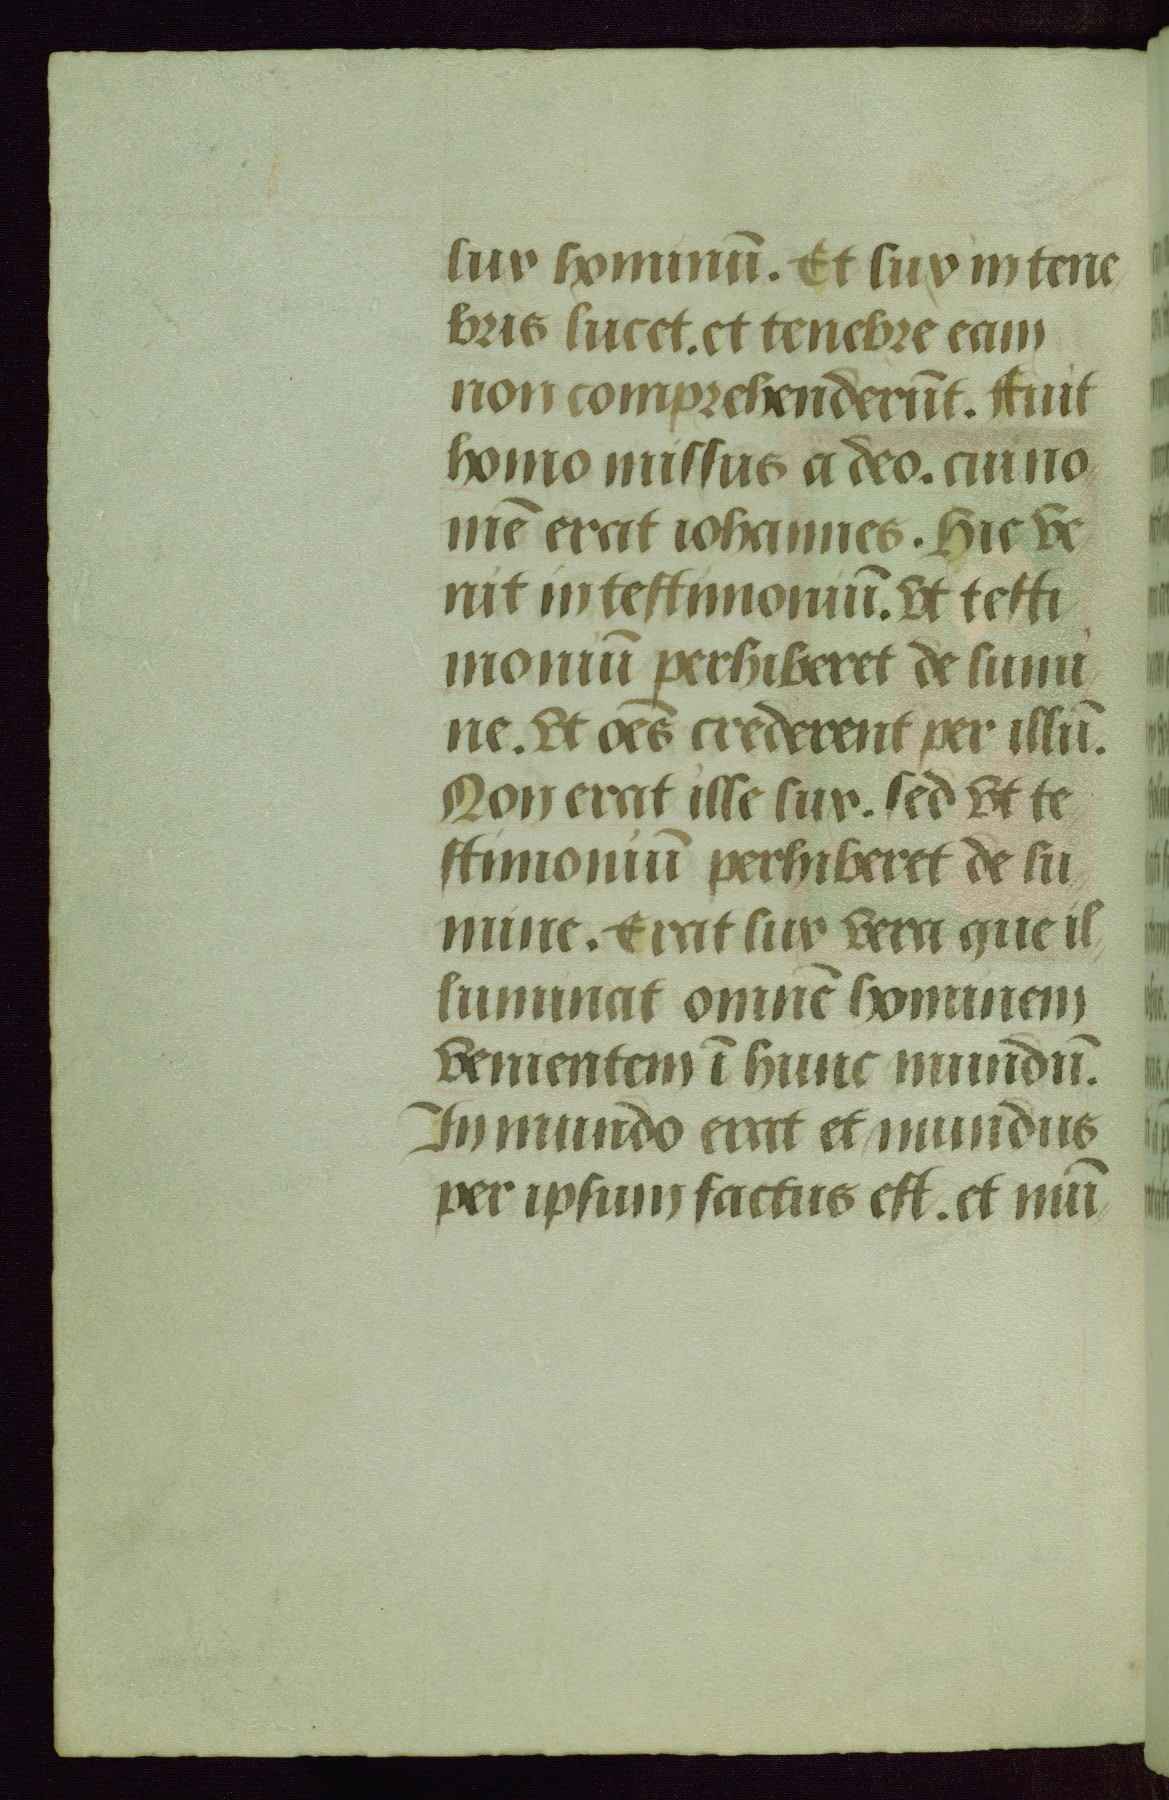 lux hominū. Et lux in tene
bris lucet. et tenebre eam
non comprehenderūt. ffuit
homo missus a deo. cui no
mē erat iohannes. Hic ve
nit in testimoniū. vt testi
moniū perhiberet de lumi
ne. vt oēs crederent per illū.
Non erat ille lux. sed vt te
stimoniū perhiberet de lu
mine. Erat lux vera que il
luminat omnē hominem
venientem ī hunc mundū.
In mundo erat et mundus
per ipsum factus est. et mū